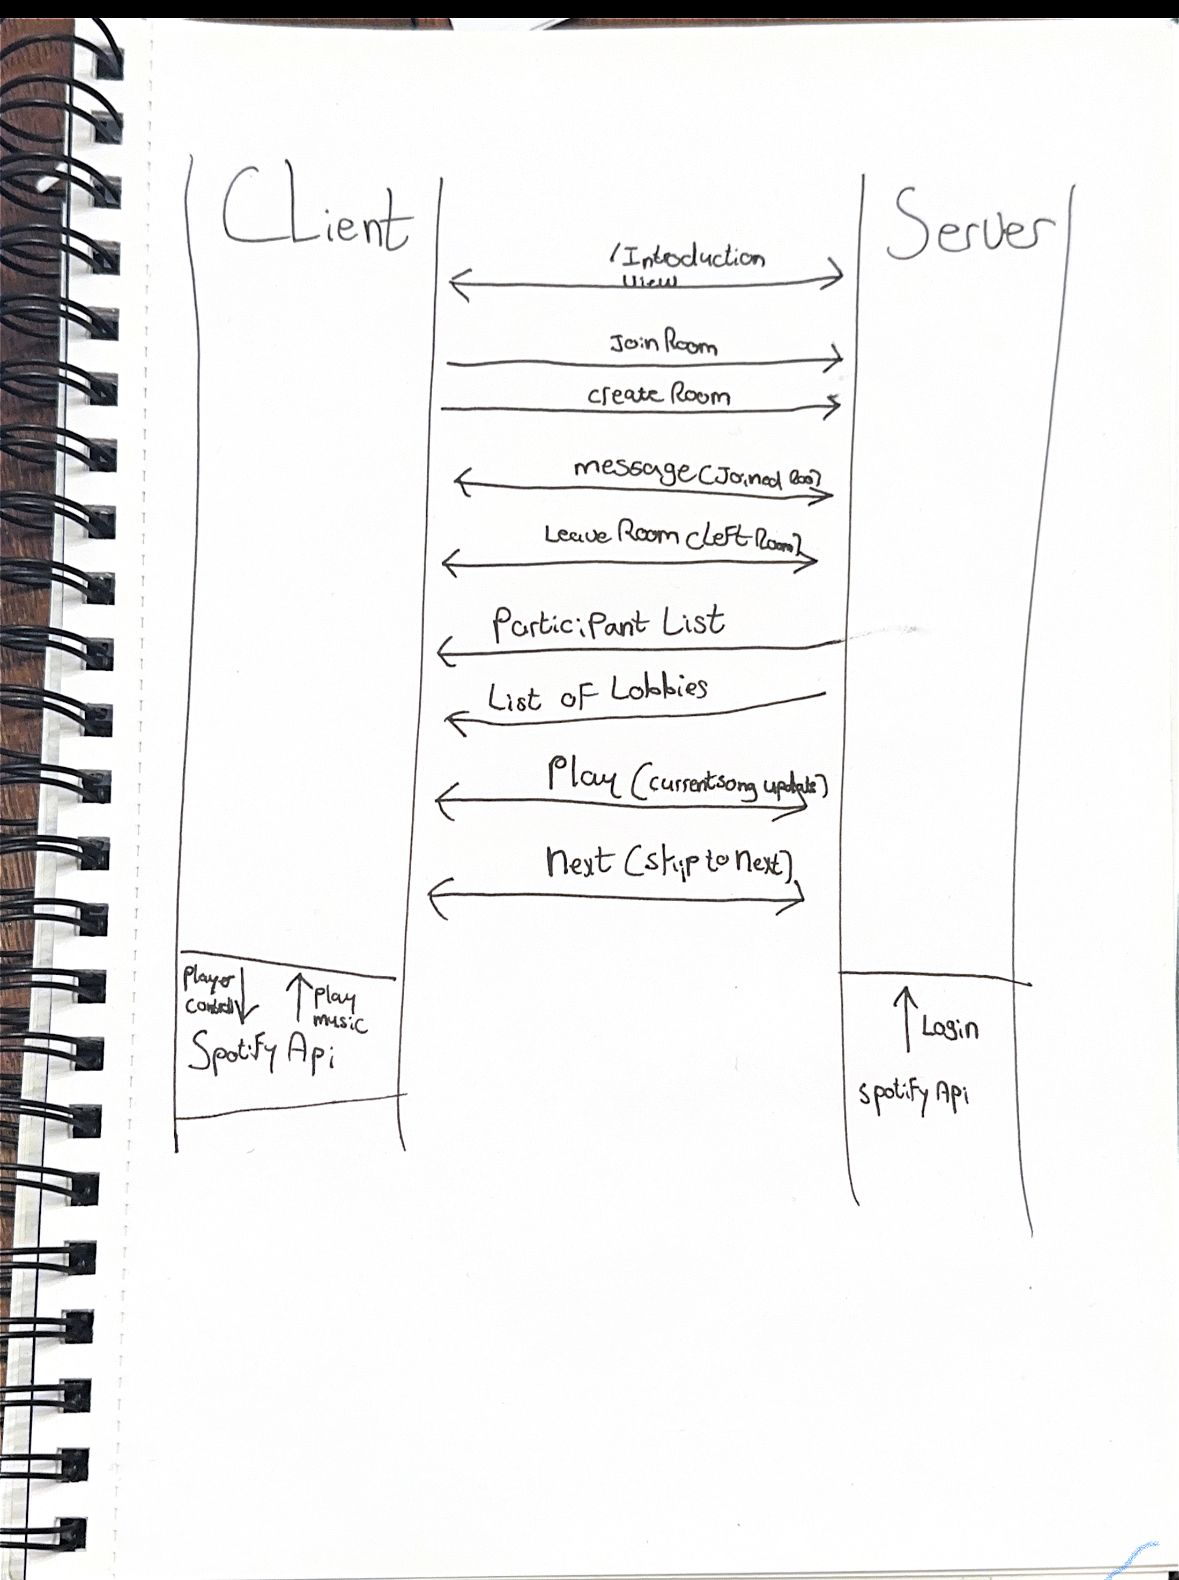 CLient
Server
/Introduction
view
Join Room
create Room
message (Joined Roo)
Leave Room (left Room)
Participant List
List of Lobbies
Play (currentsong update)
Next (skip to next)
Player
↓
↑
Play
music
Spotify Api
↑ Login
spotify Api